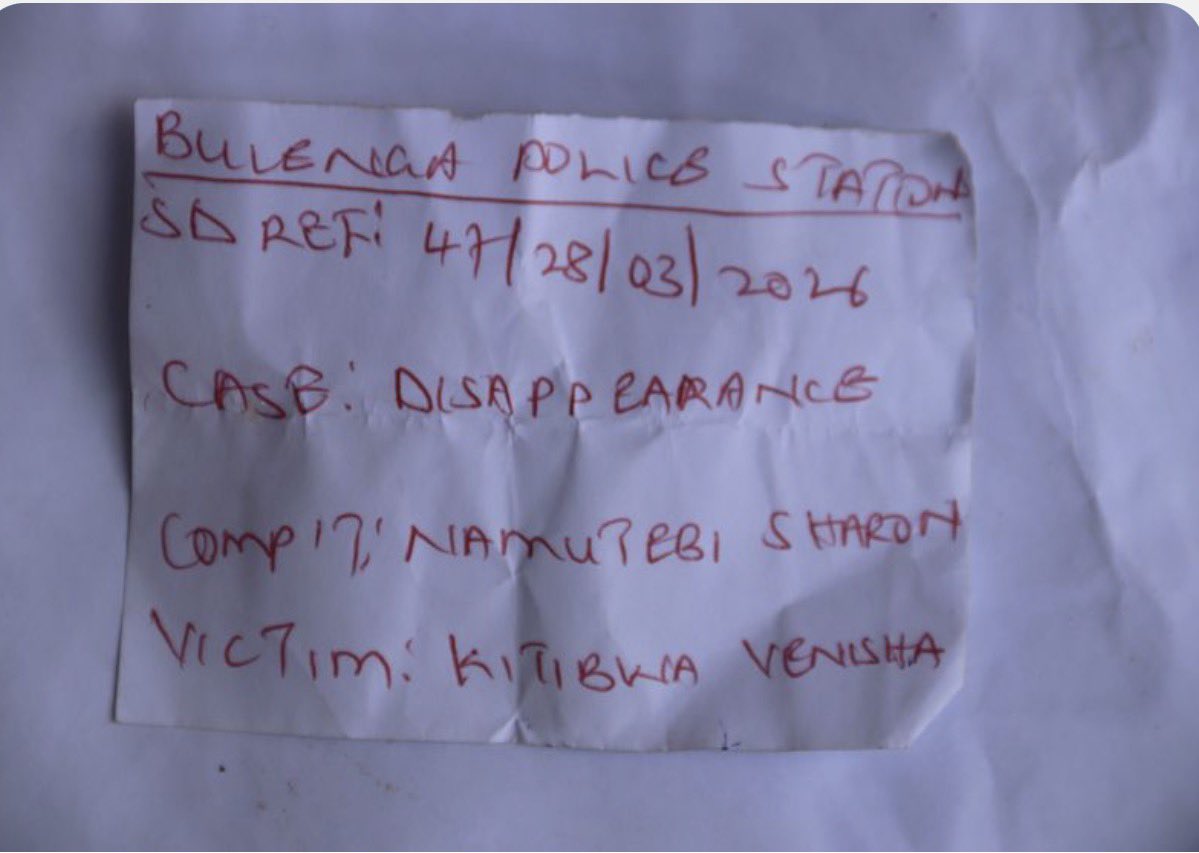 BULENGA POLICE STATION
SD REF: 47/28/03/2026
CASE: DISAPPEARANCE
COMP/T: NAMUTEBI SHARON
VICTIM: KITIBWA VENISHA